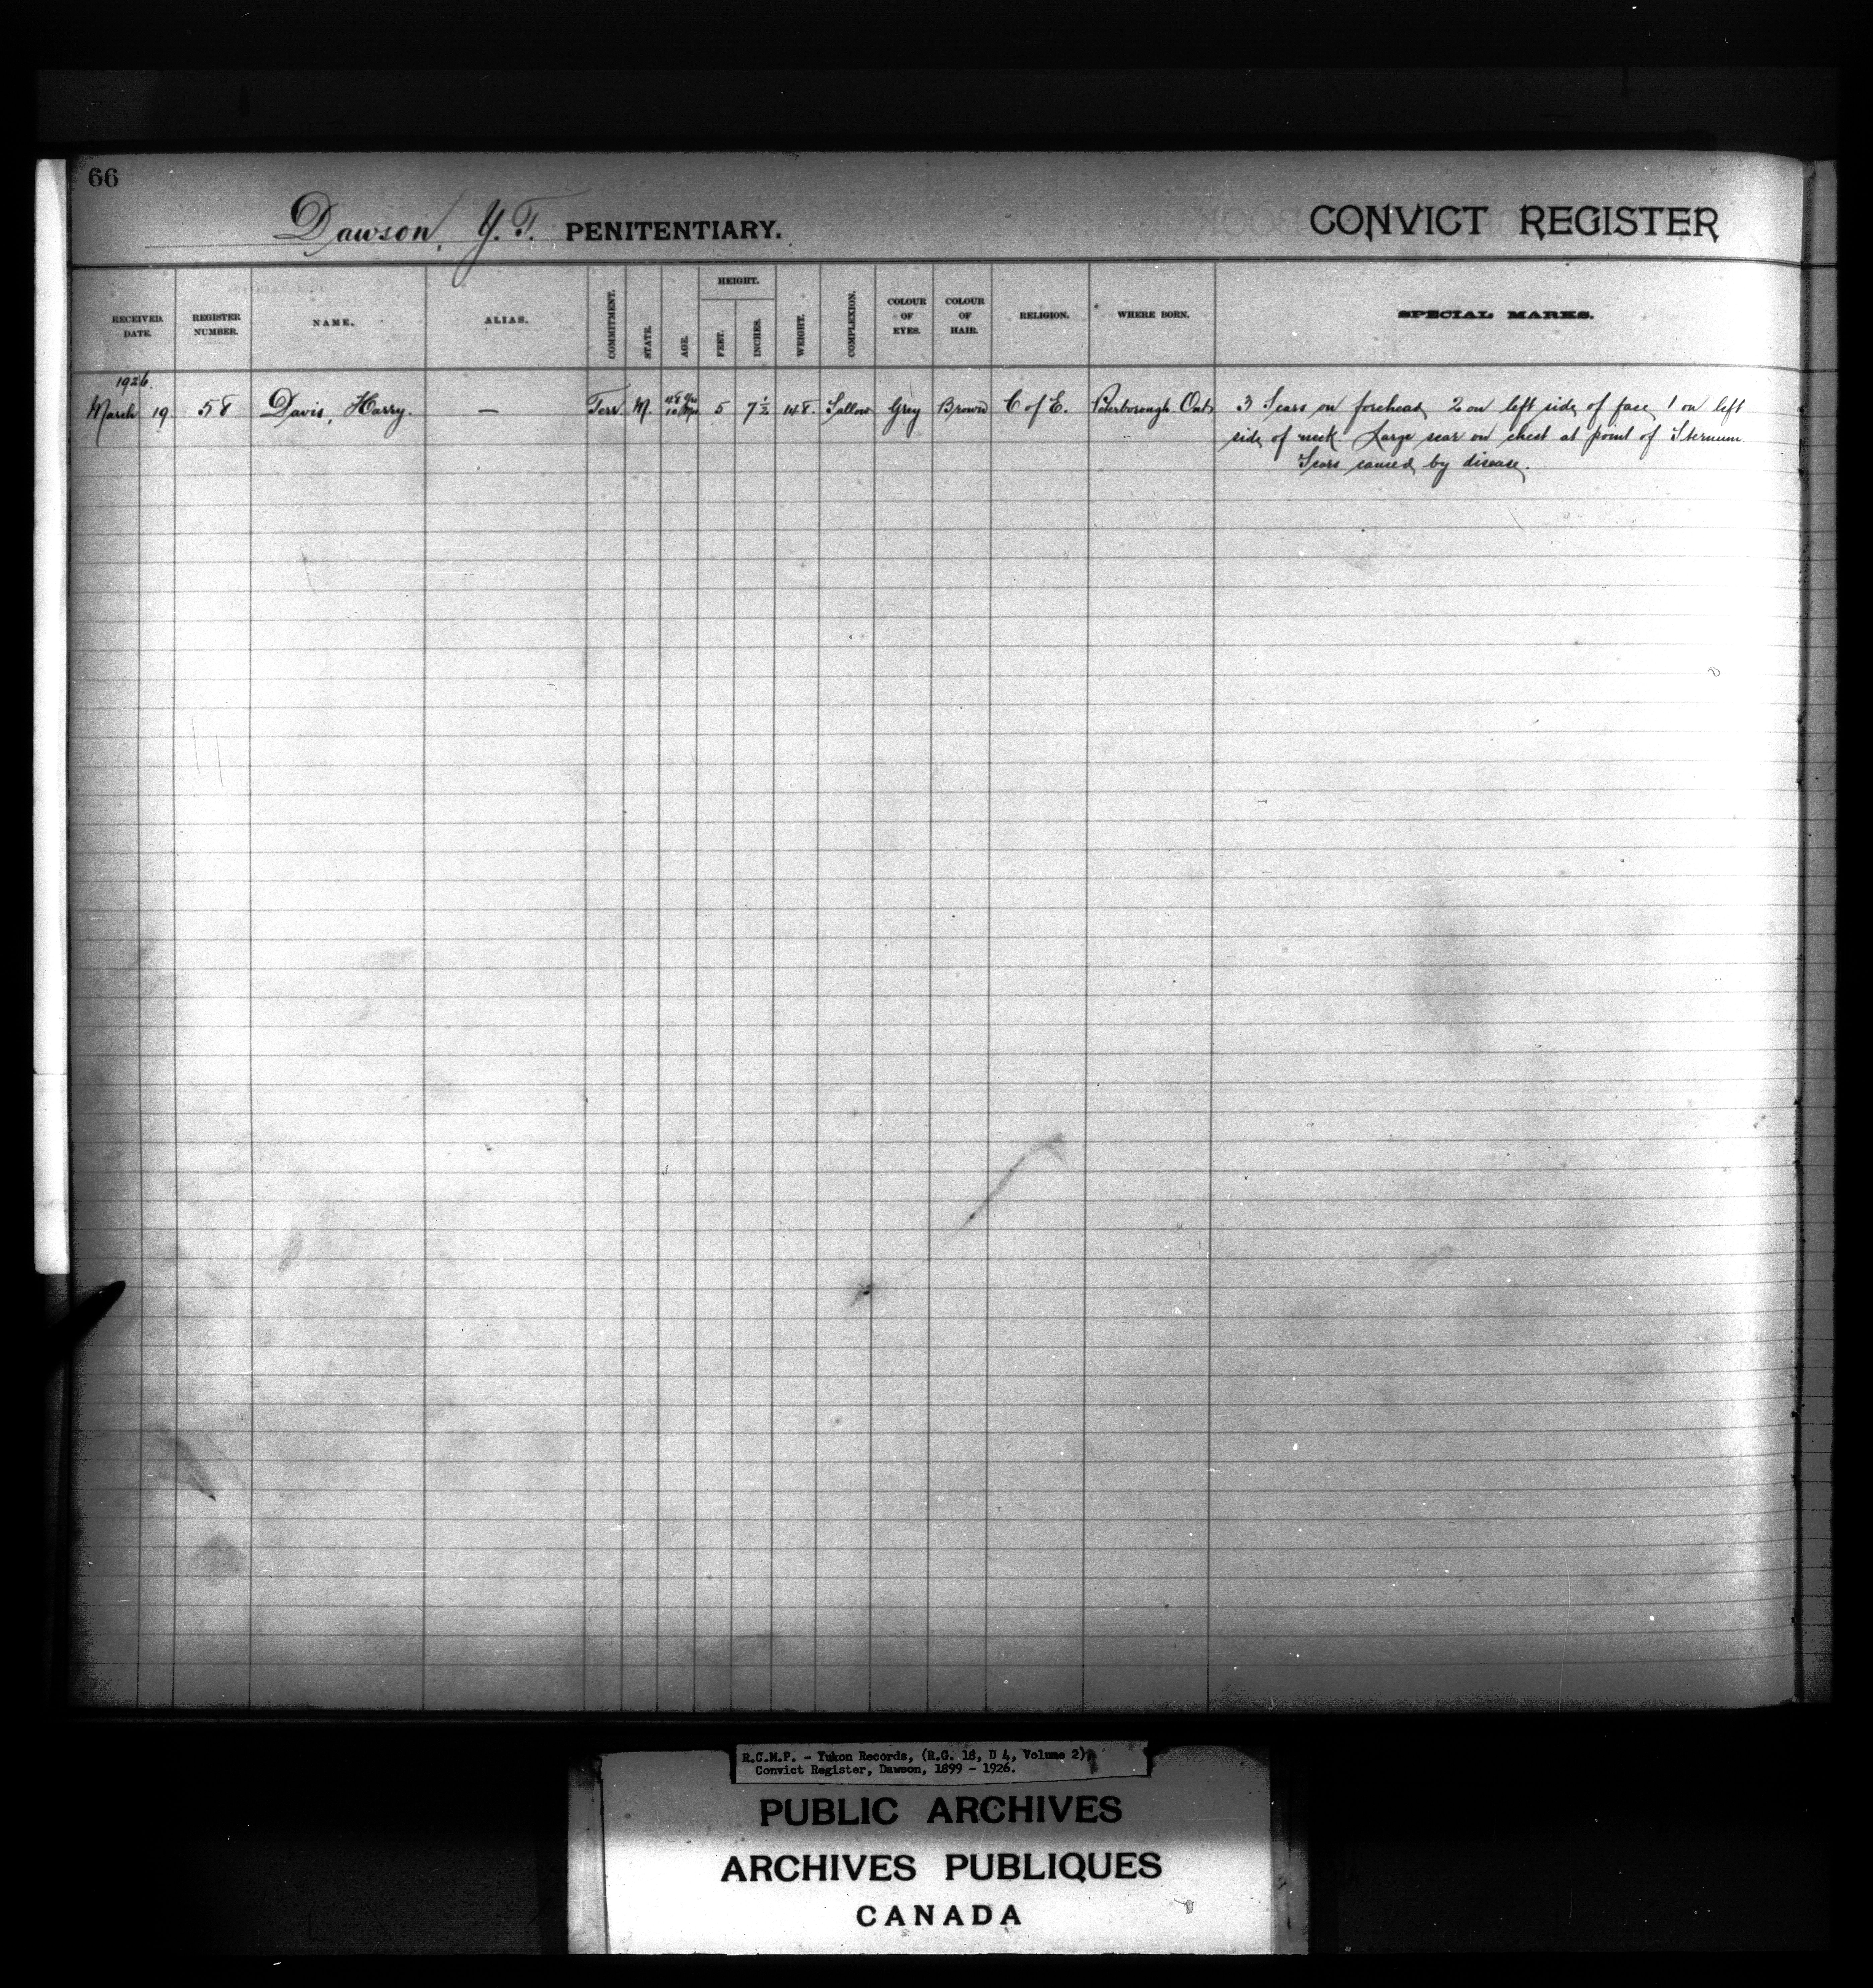 66
Dawson, Y.T. PENITENTIARY. CONVICT REGISTER
RECEIVED. DATE. REGISTER NUMBER. NAME. ALIAS. COMMITMENT. STATE. AGE. HEIGHT. FEET. INCHES. WEIGHT. COMPLEXION. COLOUR OF EYES. COLOUR OF HAIR. RELIGION. WHERE BORN. SPECIAL MARKS.
1926.
March 19. 58 Davis, Harry. — Terr. M. 48 Yrs 10 Mos 5 7½ 148. Sallow Grey Brown C of E. Peterborough Ont. 3 Scars on forehead, 2 on left side of face, 1 on left
side of neck. Large scar on chest at point of Sternum.
Scars caused by disease.
R.C.M.P. - Yukon Records, (R.G. 18, D 4, Volume 2),
Convict Register, Dawson, 1899 - 1926.
PUBLIC ARCHIVES
ARCHIVES PUBLIQUES
CANADA